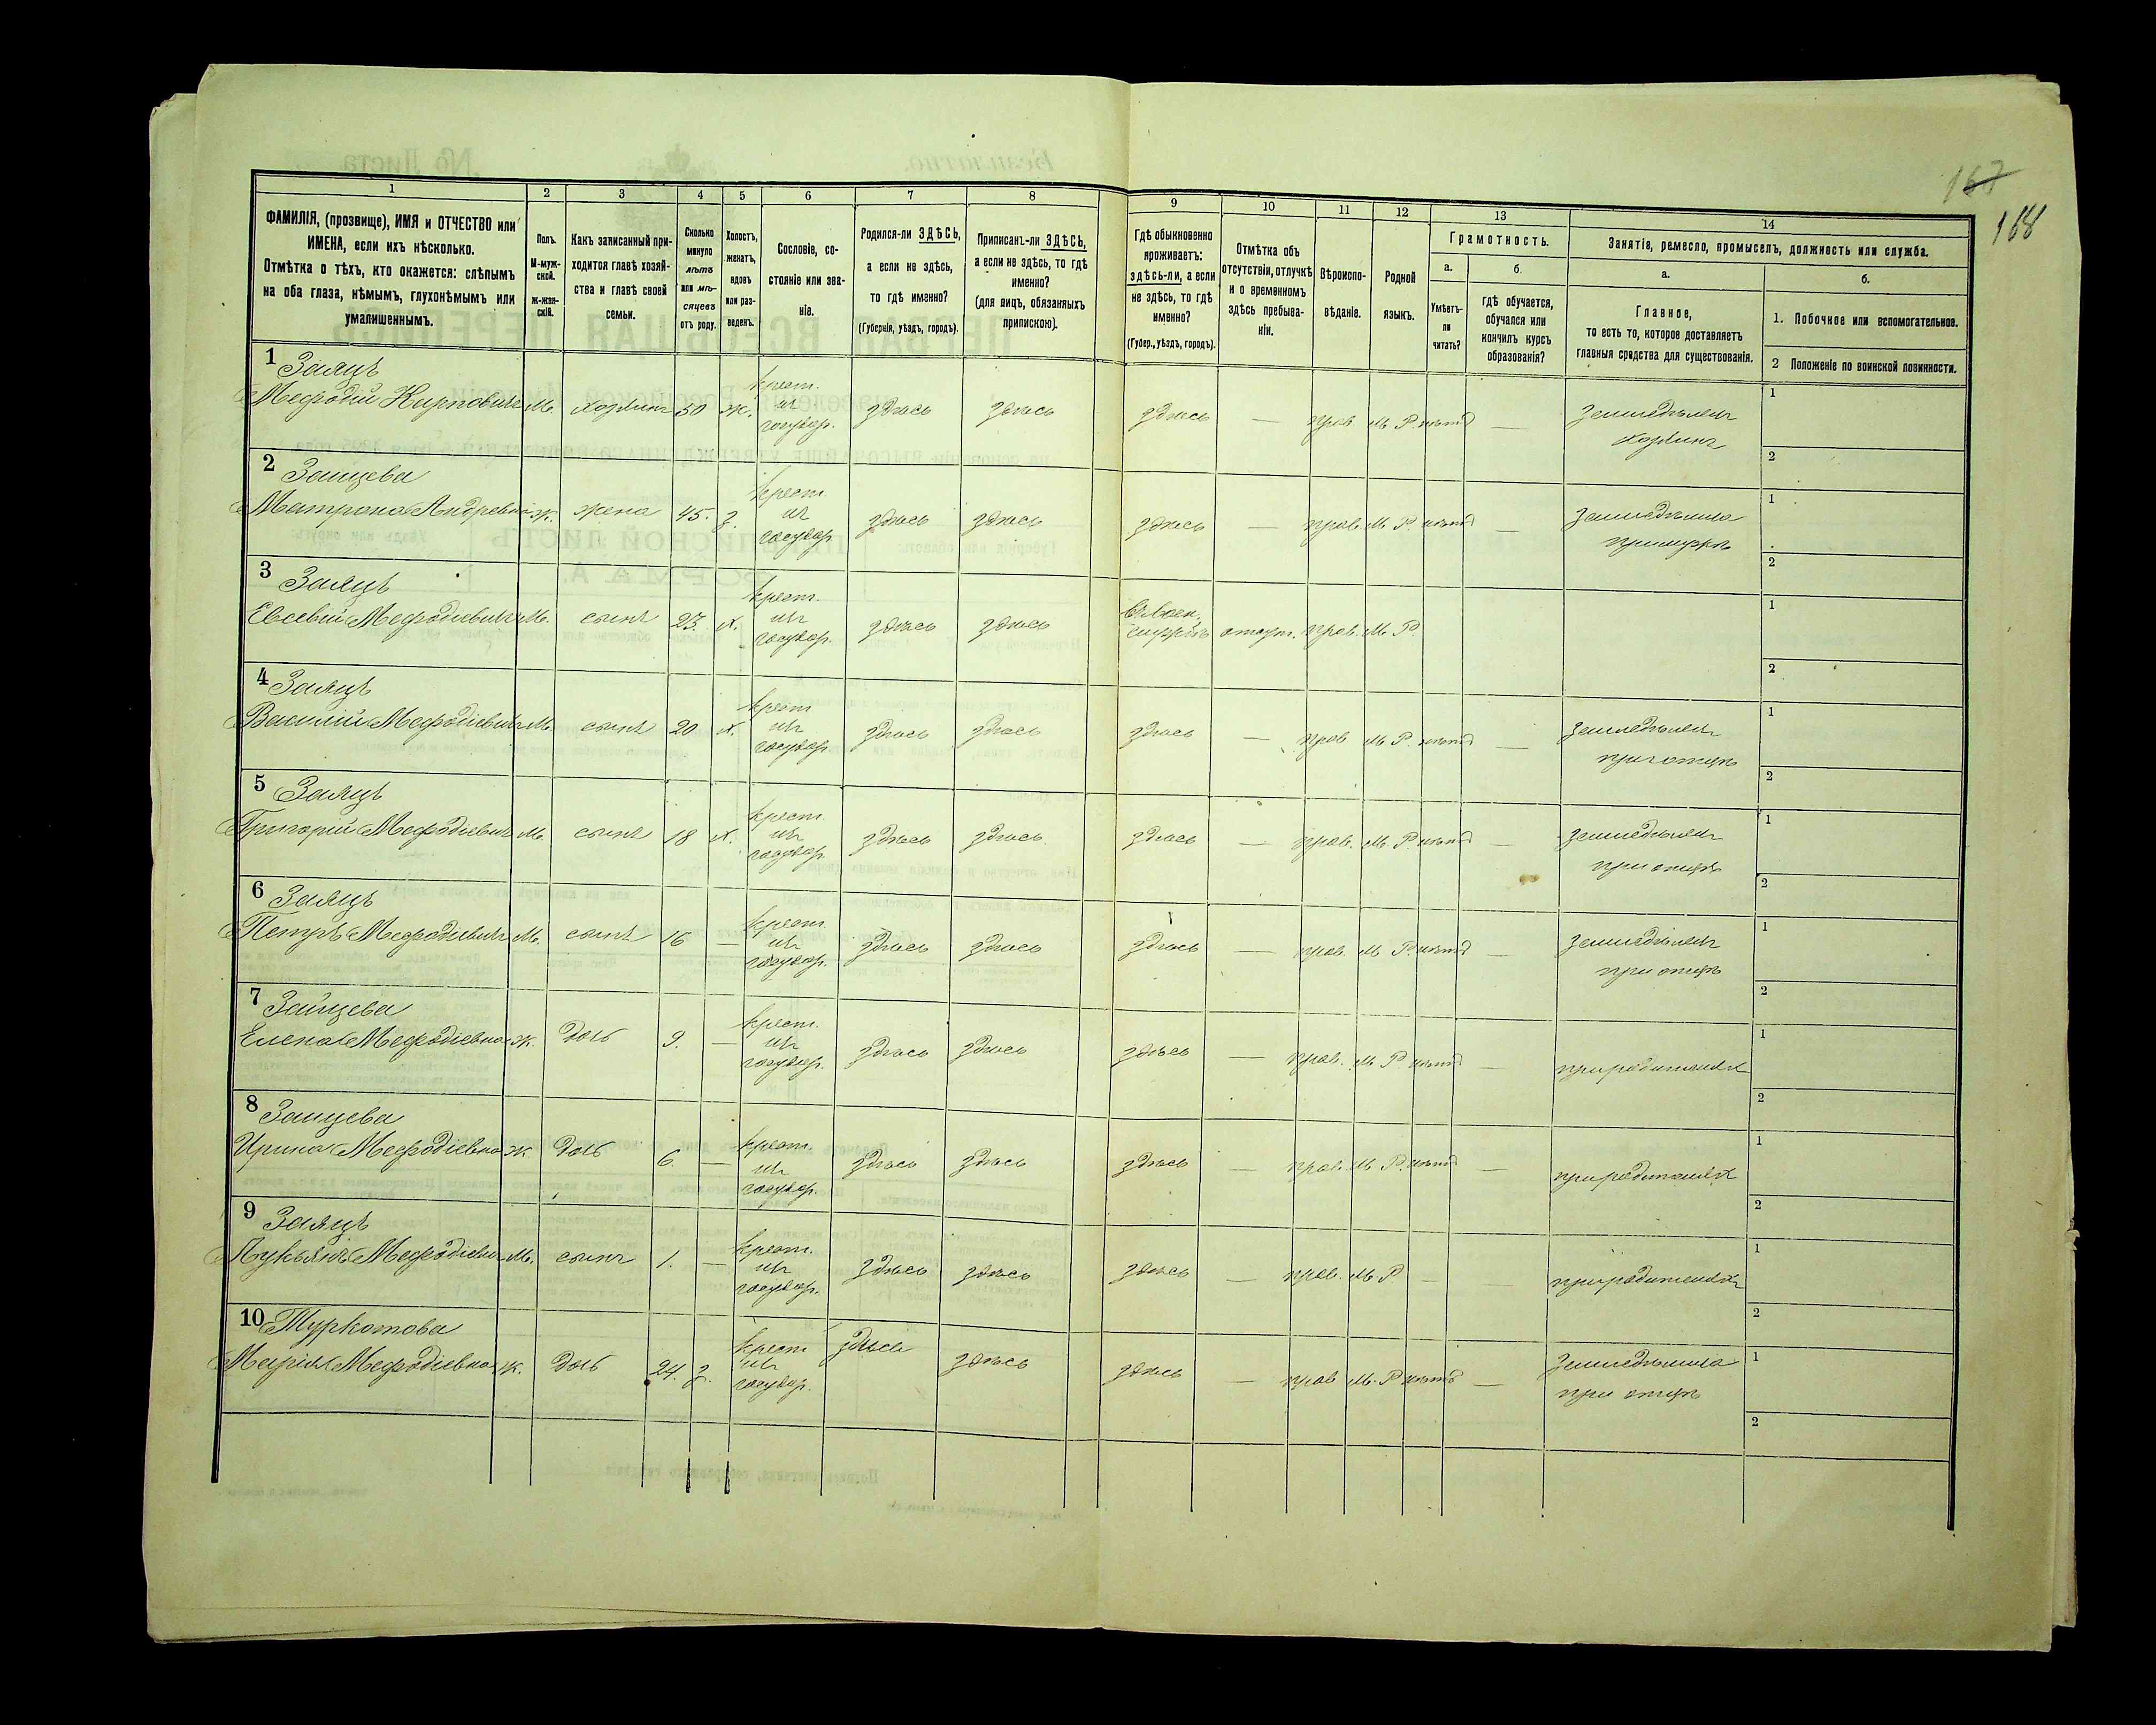 167
168
1
2
3
4
5
6
7
8
9
10
11
12
13
14
ФАМИЛІЯ, (прозвище), ИМЯ и ОТЧЕСТВО или
ИМЕНА, если ихъ нѣсколько.
Отмѣтка о тѣхъ, кто окажется: слѣпымъ
на оба глаза, нѣмымъ, глухонѣмымъ или
умалишеннымъ.
Полъ.
М-муж-
ской.
Ж-жен-
скій.
Какъ записанный при-
ходится главѣ хозяй-
ства и главѣ своей
семьи.
Сколько
минуло
лѣтъ
или мѣ-
сяцевъ
отъ роду.
Холостъ,
женатъ,
вдовъ
или раз-
веденъ.
Сословіе, со-
стояніе или зва-
ніе.
Родился-ли ЗДѢСЬ,
а если не здѣсь,
то гдѣ именно?
(Губернія, уѣздъ, городъ).
Приписанъ-ли ЗДѢСЬ,
а если не здѣсь, то гдѣ
именно?
(для лицъ, обязанныхъ
припискою).
Гдѣ обыкновенно
проживаетъ:
здѣсь-ли, а если
не здѣсь, то гдѣ
именно?
(Губер., уѣздъ, городъ).
Отмѣтка объ
отсутствіи, отлучкѣ
и о временномъ
здѣсь пребыва-
ніи.
Вѣроиспо-
вѣданіе.
Родной
языкъ.
Грамотность.
а.
Умѣетъ-
ли
читать?
б.
гдѣ обучается,
обучался или
кончилъ курсъ
образованія?
Занятіе, ремесло, промыселъ, должность или служба.
а.
Главное,
то есть то, которое доставляетъ
главныя средства для существованія.
б.
1. Побочное или вспомогательное.
2 Положеніе по воинской повинности.
1 Заяцъ
Мефодій Карповичъ М. хозяинъ 50 ж. крест. изъ государ. здѣсь здѣсь здѣсь — прав М. Р. нѣтъ — земледѣлецъ хозяинъ 1 2
2 Зайцева
Матрона Андревна ж. жена 45. з. крест. изъ государ здѣсь здѣсь здѣсь — прав. М. Р. нѣтъ — при мужѣ 1 2
3 Заяцъ
Евсевій Мефодіевичъ М. сынъ 23 х. крест. изъ государ. здѣсь здѣсь отсут. прав. М. Р. 1 2
4 Заяцъ
Василій Мефодіевичъ М. сынъ 20 х. крест изъ государ здѣсь здѣсь здѣсь — прав М. Р. нѣтъ — земледѣлецъ при отцѣ 1 2
5 Заяцъ
Григорій Мефодіевичъ М. сынъ 18 х. крест. изъ государ здѣсь здѣсь здѣсь — прав. М. Р. нѣтъ — земледѣлецъ при отцѣ 1 2
6 Заяцъ
Петръ Мефодіевичъ М. сынъ 16 — крест. изъ государ. здѣсь здѣсь здѣсь — прав. М. Р. нѣтъ — земледѣлецъ при отцѣ 1 2
7 Зайцева
Елена Мефодіевна ж. дочь 9. — крест. изъ государ. здѣсь здѣсь здѣсь — прав. М. Р нѣтъ — при родителяхъ 1 2
8 Зайцева
Ирина Мефодіевна ж дочь 6. — крест. изъ государ. здѣсь здѣсь здѣсь — прав. М. Р. нѣтъ — при родителяхъ 1 2
9 Заяцъ
Лукьянъ Мефодіевичъ М. сынъ 1. — крест. изъ государ. здѣсь здѣсь здѣсь — прав. М. Р — — при родителяхъ 1 2
10 Туркотова
Марія Мефодіевна ж. дочь 24. з. крест изъ государ. здѣсь здѣсь здѣсь — прав М. Р нѣтъ — при отцѣ 1 2